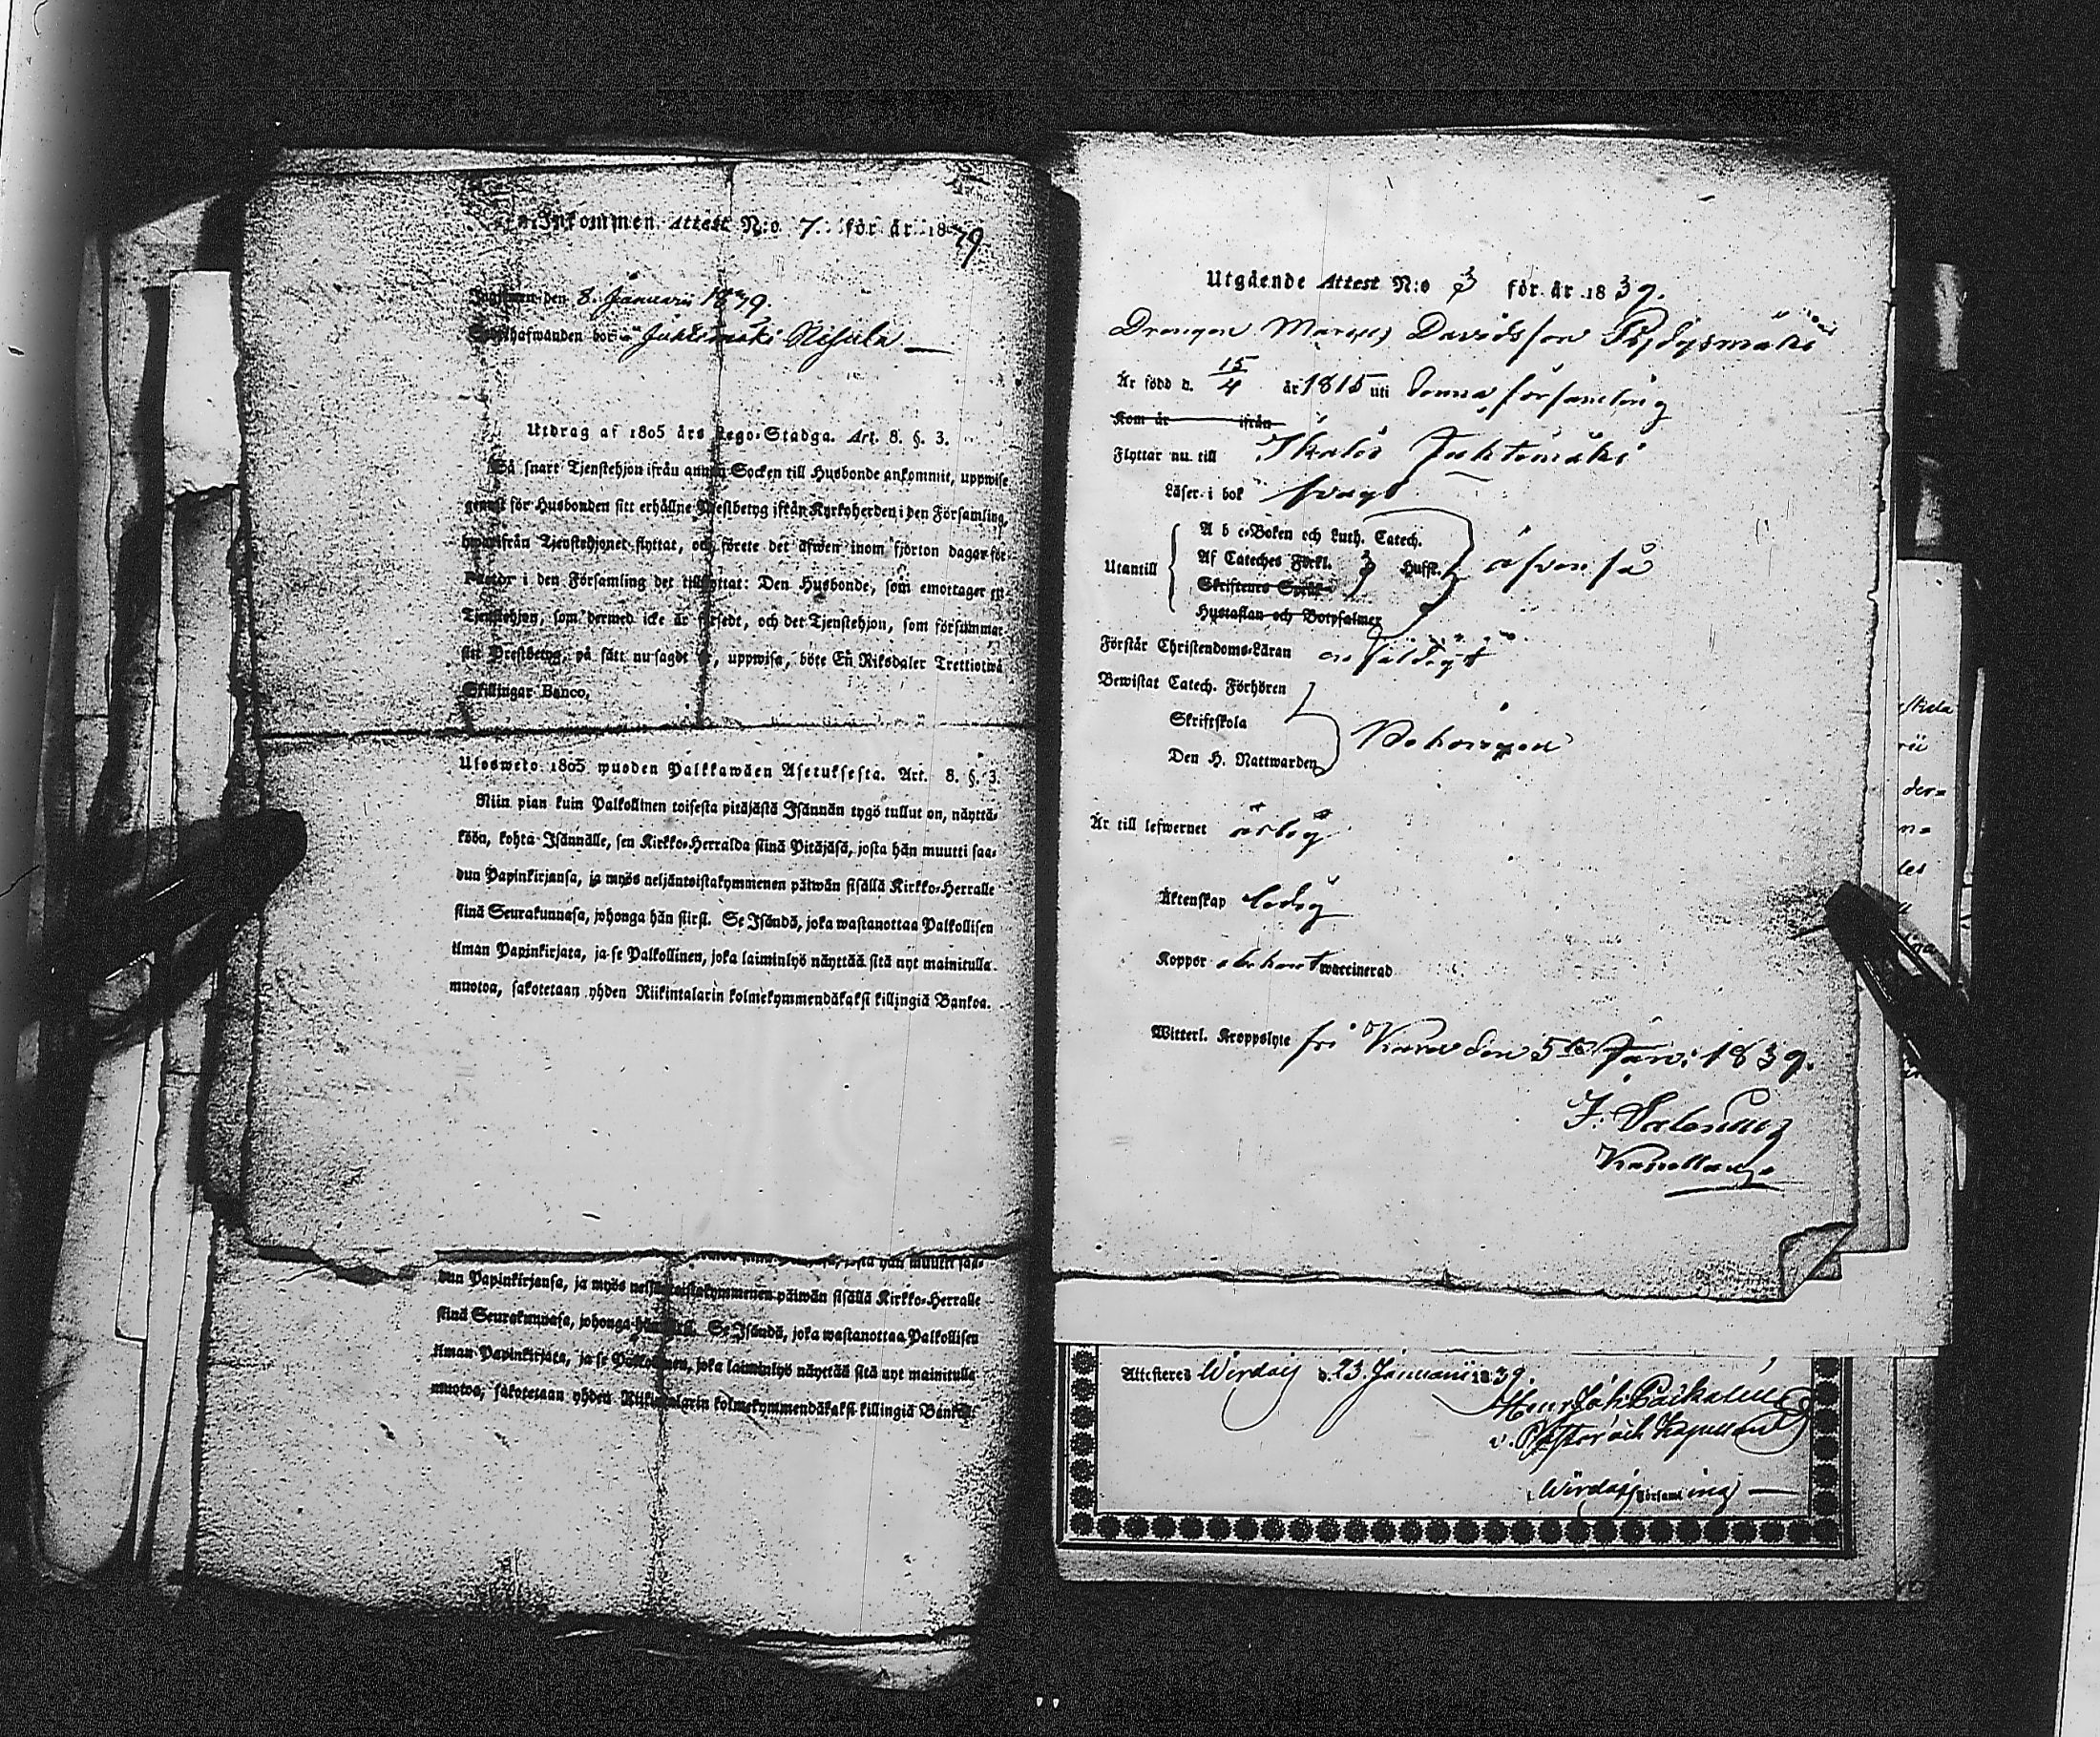 Inkommen Attest N:o 7. för år 1839
Ingifwen den 8. Januarii 1839.
Sedelhafwanden bor i Juhtimäki Nisula
Utdrag af 1805 års Lego-Stadga. Art. 8. §. 3.
Så snart Tjenstehjon ifrån annan Socken till Husbonde ankommit, uppwise
genast för Husbonden sitt erhållne Prestbetyg ifrån Kyrkoherden i den Församling,
hwarifrån Tjenstehjonet flyttat, och förete det äfwen inom fjorton dagar för
Pastor i den Församling det tillflyttat: Den Husbonde, som emottager en
Tjenstehjon, som dermed icke är försedt, och det Tjenstehjon, som försummar
sitt Prestbetyg, på sätt nu sagdt är, uppwisa, böte En Riksdaler Trettiotwå
Skillingar Banco.
Ulosweto 1805 wuoden Palkkawäen Asetuksesta. Art. 8. §. 3.
Niin pian kuin Palkollinen toisesta pitäjästä Isännän tygö tullut on, näyttä-
köön, kohta Isännälle, sen Kirkko-Herralda siinä Pitäjäsä, josta hän muutti saa-
dun Papinkirjansa, ja myös neljäntoistakymmenen päiwän sisällä Kirkko-Herralle
siinä Seurakunnasa, johonga hän siirsi. Se Isändä, joka wastanottaa Palkollisen
ilman Papinkirjata, ja se Palkollinen, joka laiminlyö näyttää sitä nyt mainitulla
muotoa, sakotetaan yhden Riikintalarin kolmekymmendäkaksi killingiä Bankoa.
hän muutti saa-
dun Papinkirjansa, ja myös neljäntoistakymmenen päiwän sisällä Kirkko-Herralle
siinä Seurakunnasa, johonga hän siirsi. Se Isändä, joka wastanottaa Palkollisen
ilman Papinkirjata, ja se Palkollinen, joka laiminlyö näyttää sitä nyt mainitulla
muotoa, sakotetaan yhden Riikintalarin kolmekymmendäkaksi killingiä Bankoa.
Utgående Attest N:o 3 för år 1839.
Drengen Davidsson
Är född d. 15/4 år 1815 uti denna församling
Kom år ifrån
Flyttar nu till Ikalis Juhtimäki
Läser i bok svagt
A b c-Boken och Luth. Catech.
Utantill Af Cateches Förkl. 3 Hufst. äfven så
Skriftenes Språk
Hustaflan och Botpsalmer
Förstår Christendoms-Läran enfaldigt
Bewistat Catech. Förhören
Skriftskola Behörigen
Den H. Nattwarden
Är till lefwernet ärlig
Äktenskap ledig
Koppor vaccinerad
Witterl. Kroppslyte fri den 5te Jan: 1839.
Attesteres Wirdois d. 23. Januarii 1839.
v. Pastor och Kapellan
i Wirdois Församling
skela
der=